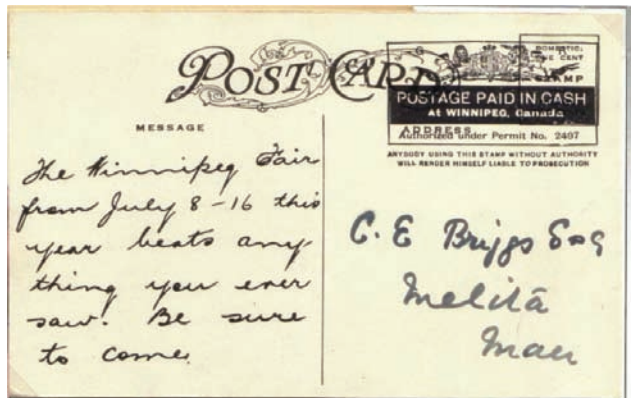 POST CARD
DOMESTIC,
ONE CENT
STAMP
POSTAGE PAID IN CASH
At WINNIPEG, Canada
ADDRESS
Authorized under Permit No. 2497
ANYBODY USING THIS STAMP WITHOUT AUTHORITY
WILL RENDER HIMSELF LIABLE TO PROSECUTION
MESSAGE
The Winnipeg Fair
from July 8-16 this
year beats any-
thing you ever
saw. Be sure
to come.
C. E Briggs Esq
Melita
Man